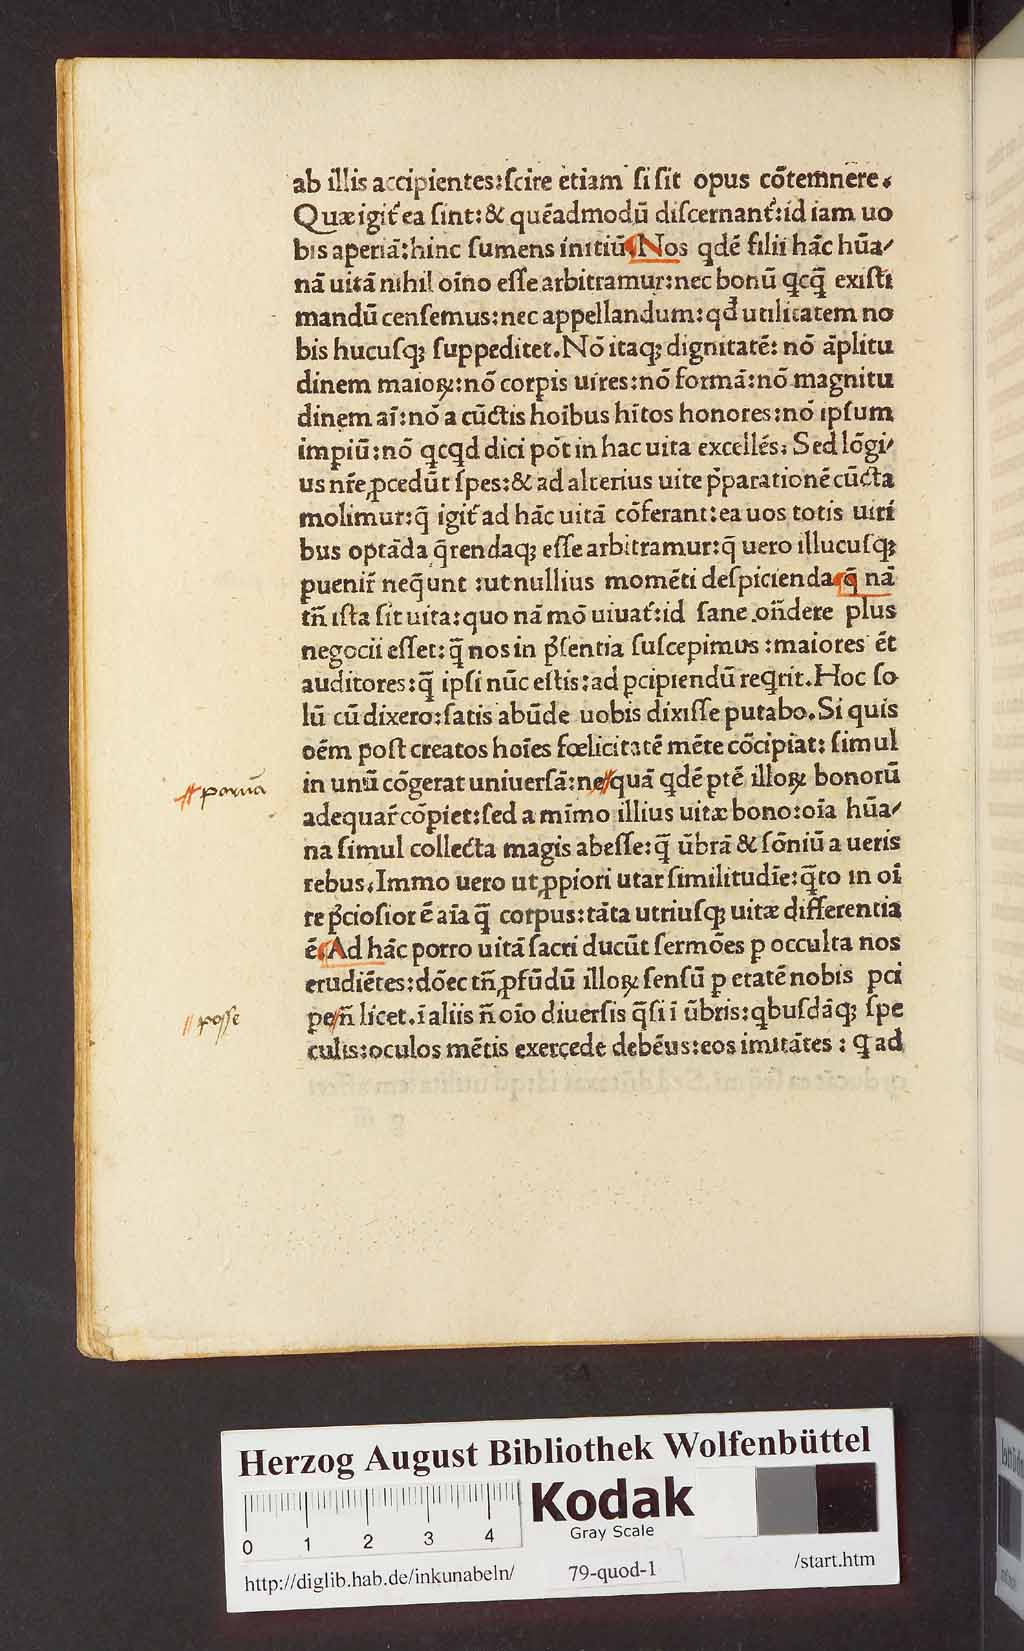 ab illis accipientes:ſcire etiam ſi ſit opus cõtemnere.
Quæ igit͛ ea ſint:& quẽadmodũ diſcernant͛:id iam uo
bis aperiã:hinc ſumens initiũ Nos qdẽ filii hãc hũa/
nã uitã nihil oĩno eſſe arbitramur:nec bonũ qcq̃ exiſti
mandũ cenſemus:nec appellandum:qđ utilitatem no
bis hucuſqꝫ ſuppeditet.Nõ itaqꝫ dignitatẽ: nõ ãplitu
dinem maioꝝ:nõ corpis uires:nõ formã:nõ magnitu
dinem aĩ:nõ a cũctis hoĩbus hĩtos honores:nõ ipſum
impiũ:nõ qcqd dici põt in hac uita excellẽs. Sed lõgi/
us nr̃e ꝓcedũt ſpes:& ad alterius uite p̃parationẽ cũcta
molimur:q̃ igit͛ ad hãc uitã cõferant:ea uos totis uiri
bus optãda q̃rendaqꝫ eſſe arbitramur:q̃ uero illucuſqꝫ
ꝑuenir̃ neq̃unt :ut nullius momẽti deſpicienda q̃ nã
tñ iſta ſit uita:quo nã mõ uiuat͛:id ſane oñdere plus
negocii eſſet:q̃ nos in p̃ſentia ſuſcepimus :maiores ẽt
auditores:q̃ ipſi nũc eſtis:ad ꝑcipiendũ reqrit.Hoc ſo
lũ cũ dixero:ſatis abũde uobis dixiſſe putabo.Si quis
oẽm poſt creatos hoĩes fœlicitatẽ mẽte cõcipiat: ſimul
in unũ cõgerat uniuerſã:ne//quã qdẽ ptẽ illoꝝ bonorũ
// paruã
adequar̃ cõpiet:ſed a mĩmo illius uitæ bono:oĩa hũa/
na ſimul collecta magis abeſſe:q̃ ũbrã & ſõniũ a ueris
rebus.Immo uero ut ꝓpiori utar ſimilitudĩe:q̃to in oĩ
re p̃cioſior ẽ aĩa q̃ corpus:tãta utriuſqꝫ uitæ differentia
ẽ Ad hãc porro uitã ſacri ducũt ſermões ꝑ occulta nos
erudiẽtes:dõec tñ ꝓfũdũ illoꝝ ſenſũ ꝑ etatẽ nobis ꝑci
pe//ñ licet.ĩ aliis ñ oĩo diuerſis q̃ſi ĩ ũbris:qbuſdãqꝫ ſpe
// poſſe
culis:oculos mẽtis exercede debẽus:eos imitãtes : q ad
Herzog August Bibliothek Wolfenbüttel
0 1 2 3 4
Kodak
Gray Scale
http://diglib.hab.de/inkunabeln/ 79-quod-1 /start.htm